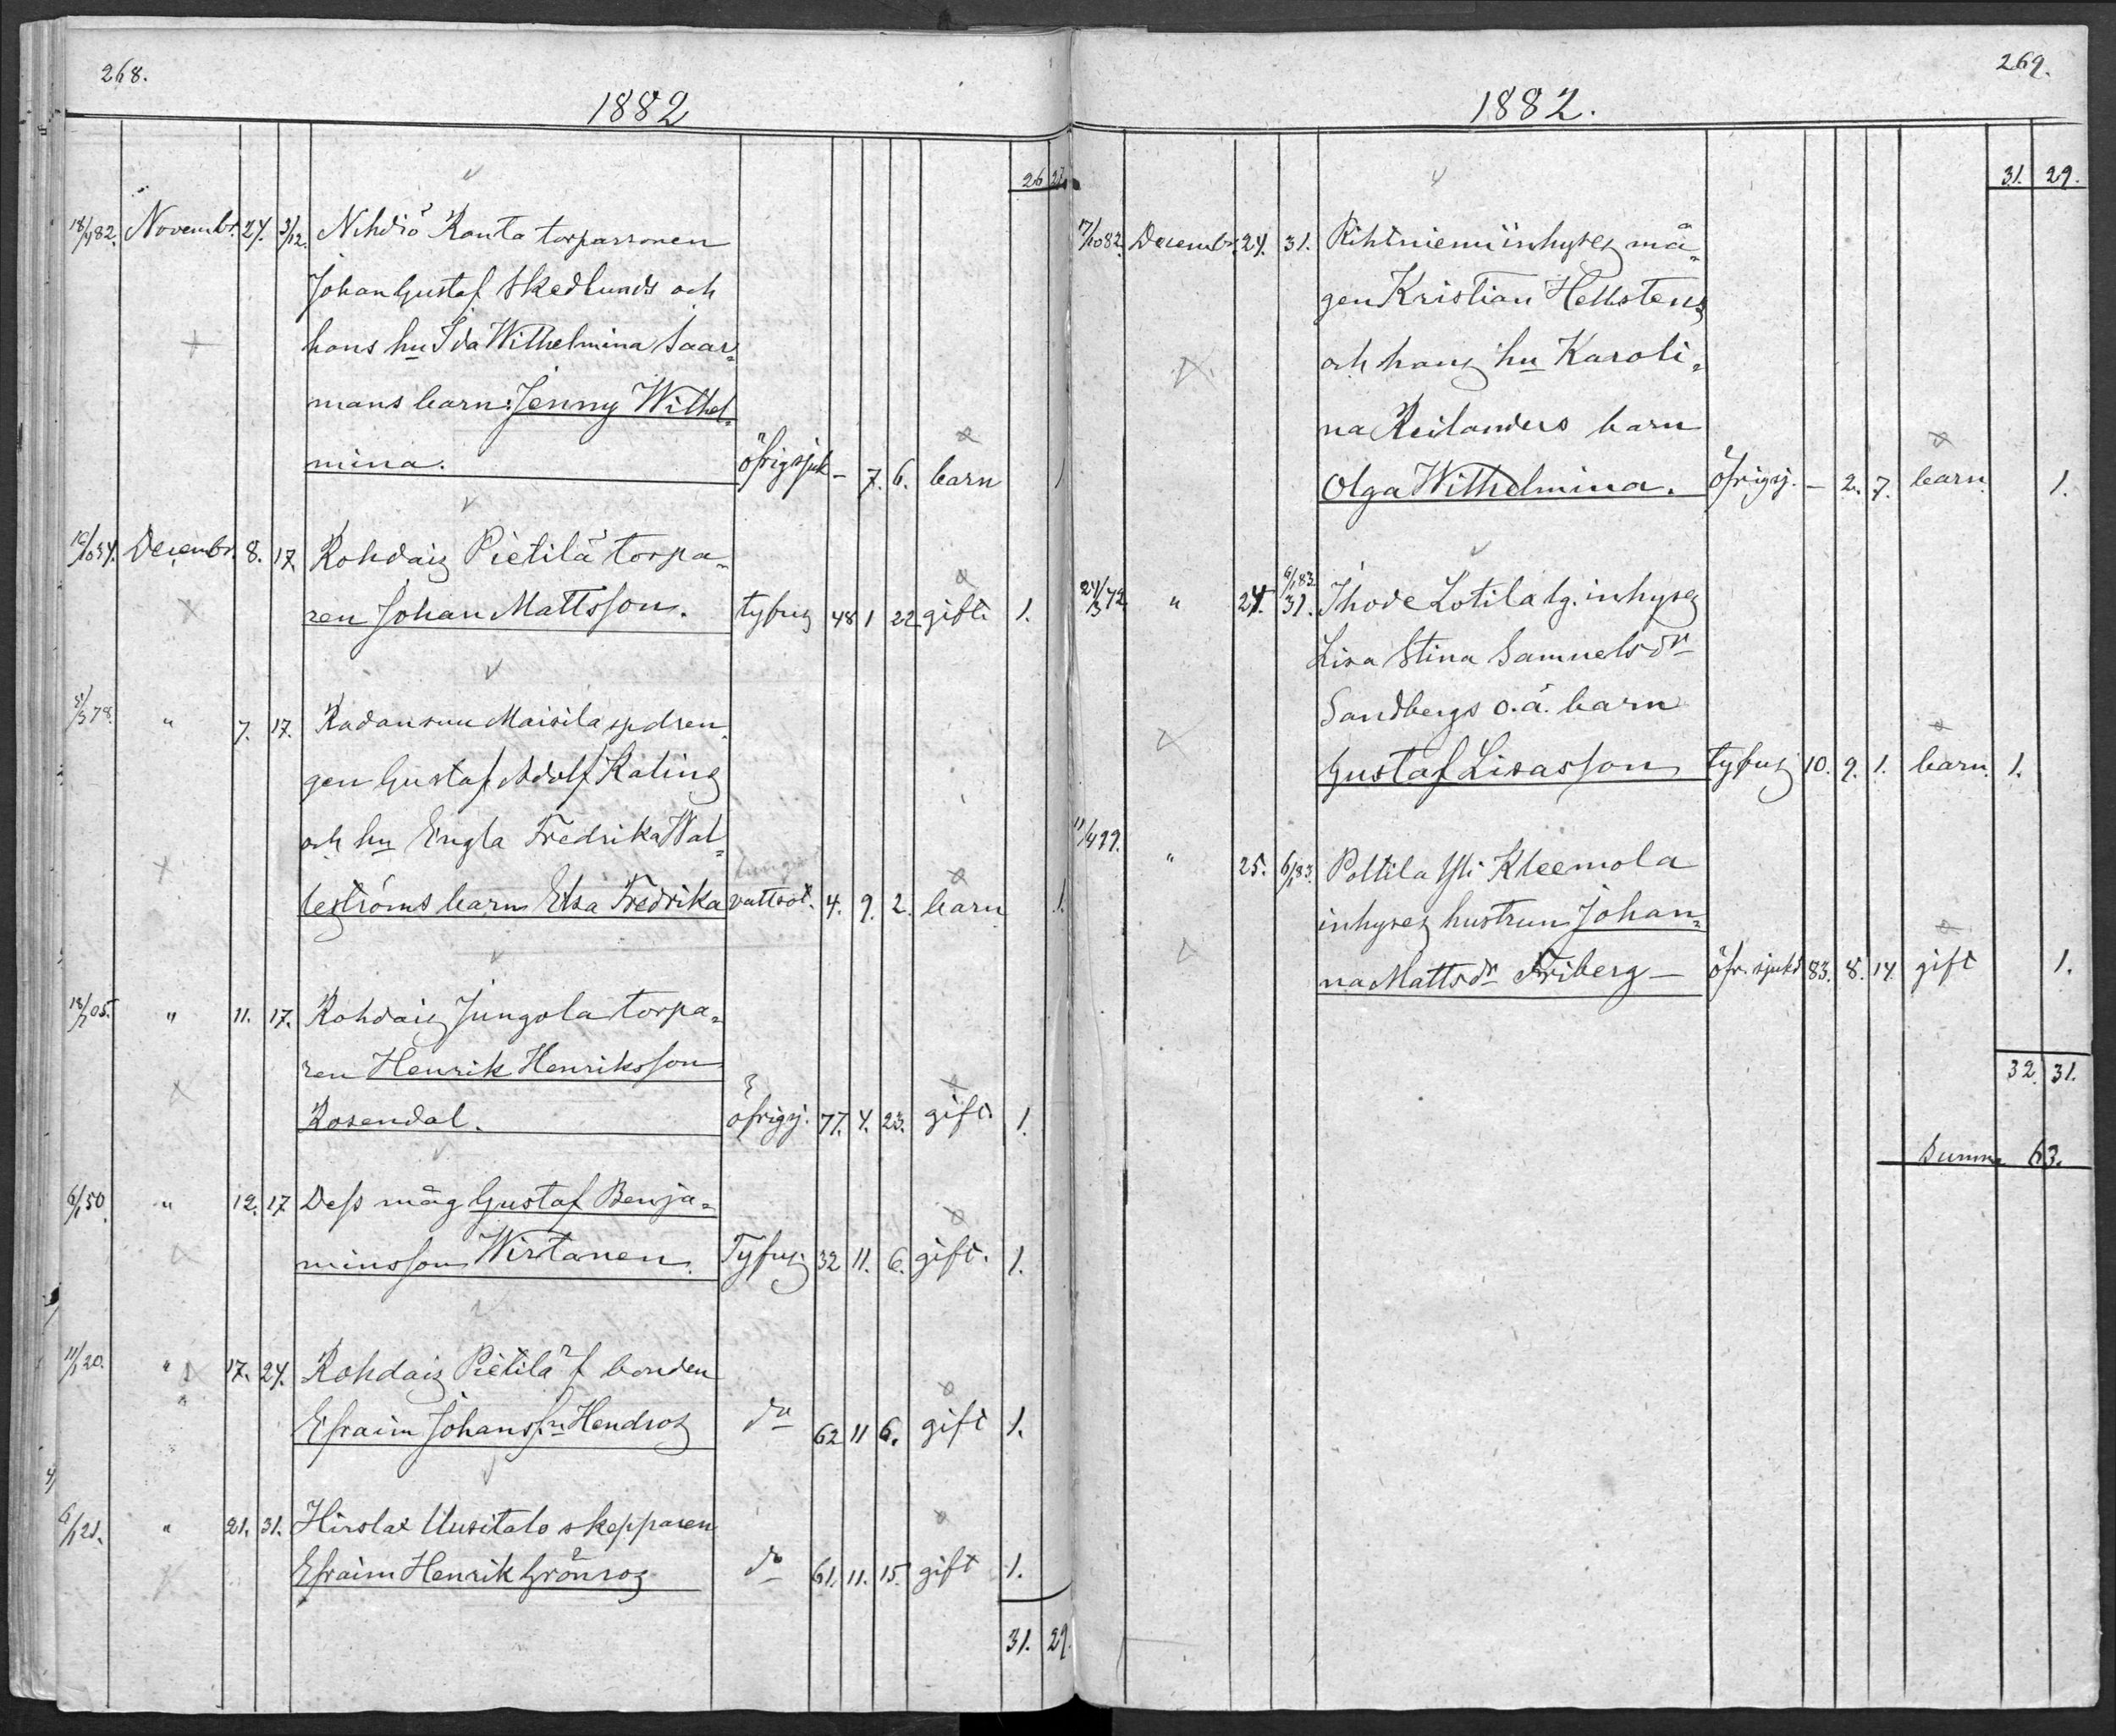 268.
1882
26 27
18/4 82. Novembr. 24. 3/12. Nihdiö Ranta torparsonen
Johan Gustaf Skedlunds och
hans hu Ida Wilhelmina Saar=
mans barn: Jenny Wilhel=
mina. öfrig sjuk – 7. 6. barn 1
16/10 34. Decembr. 8. 17. Rohdais Pietilä torpa=
ren Johan Mattsson. tyfus 48 1 22 gift. 1.
5/3 78. " 7. 17. Radansuu Maisila spdren
gen Gustaf Adolf Kating
och hu Engla Fredrika Wal=
leströms barn Elsa Fredrika vattsot. 4. 9. 2. barn 1.
18/7 05. " 11. 17. Rohdais Jungola torpa=
ren Henrik Henriksson
Rosendal. öfrigsj. 77. 4. 23. gift 1.
6/1 50. " 12. 17 Dess måg Gustaf Benja=
minsson Wirtanen. Tyfus 32 11. 6. gift. 1.
11/1 20. " 17. 24. Rohdais Pietilä f bonden
Efraim Johanssn Hendros do 62 11 6. gift 1.
6/1 21. " 21. 31. Hirslax Uusitalo skepparen
Efraim Henrik Grönros do 61. 11. 15. gift 1.
31. 29.
269.
1882.
31. 29.
17/10 82. Decembr. 24. 31. Rihtniemi inhyses må=
gen Kristian Hellstens
och hans hu Karoli=
na Reilanders barn
Olga Wilhelmina. öfrigsj. – 2. 7. barn 1.
24/3 72 " 24. 6/1 83. 31. Ihode Lotila lg. inhyses
Lisa Stina Samuelsdr
Sandbergs o. ä. barn
Gustaf Lisasson tyfus 10. 9. 1. barn. 1.
11/4 99. " 25. 6/1 83. Polttila Yli Kleemola
inhyses hustrun Johan=
na Mattsdr Friberg – öfr. sjukd 83. 8. 14. gift 1.
32. 31.
Summa 63.